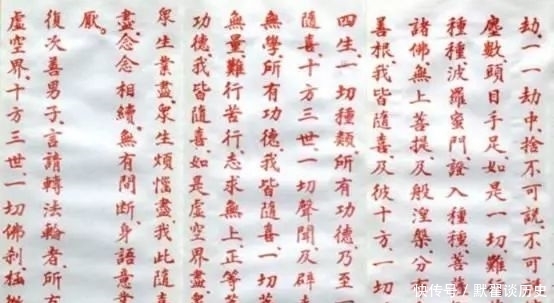 劫、一一劫中、捨不可說不可
塵數頭目手足、如是一切難
種種波羅蜜門、證入種種菩
諸佛無上菩提、及般涅槃分
善根、我皆隨喜、及彼十方、一切
四生一切種類所有功德乃至
隨喜十方三世、一切聲聞及辟
無學所有功德、我皆隨喜、一切
無量難行苦行、志求無上、正等
功德、我皆隨喜、如是虛空界盡、
眾生業盡、眾生煩惱盡、我此隨
盡、念念相續、無有間斷、身語意
厭。
復次善男子、言請轉法輪者、所
虛空界、十方三世、一切佛剎、極
快传号/默翟谈历史